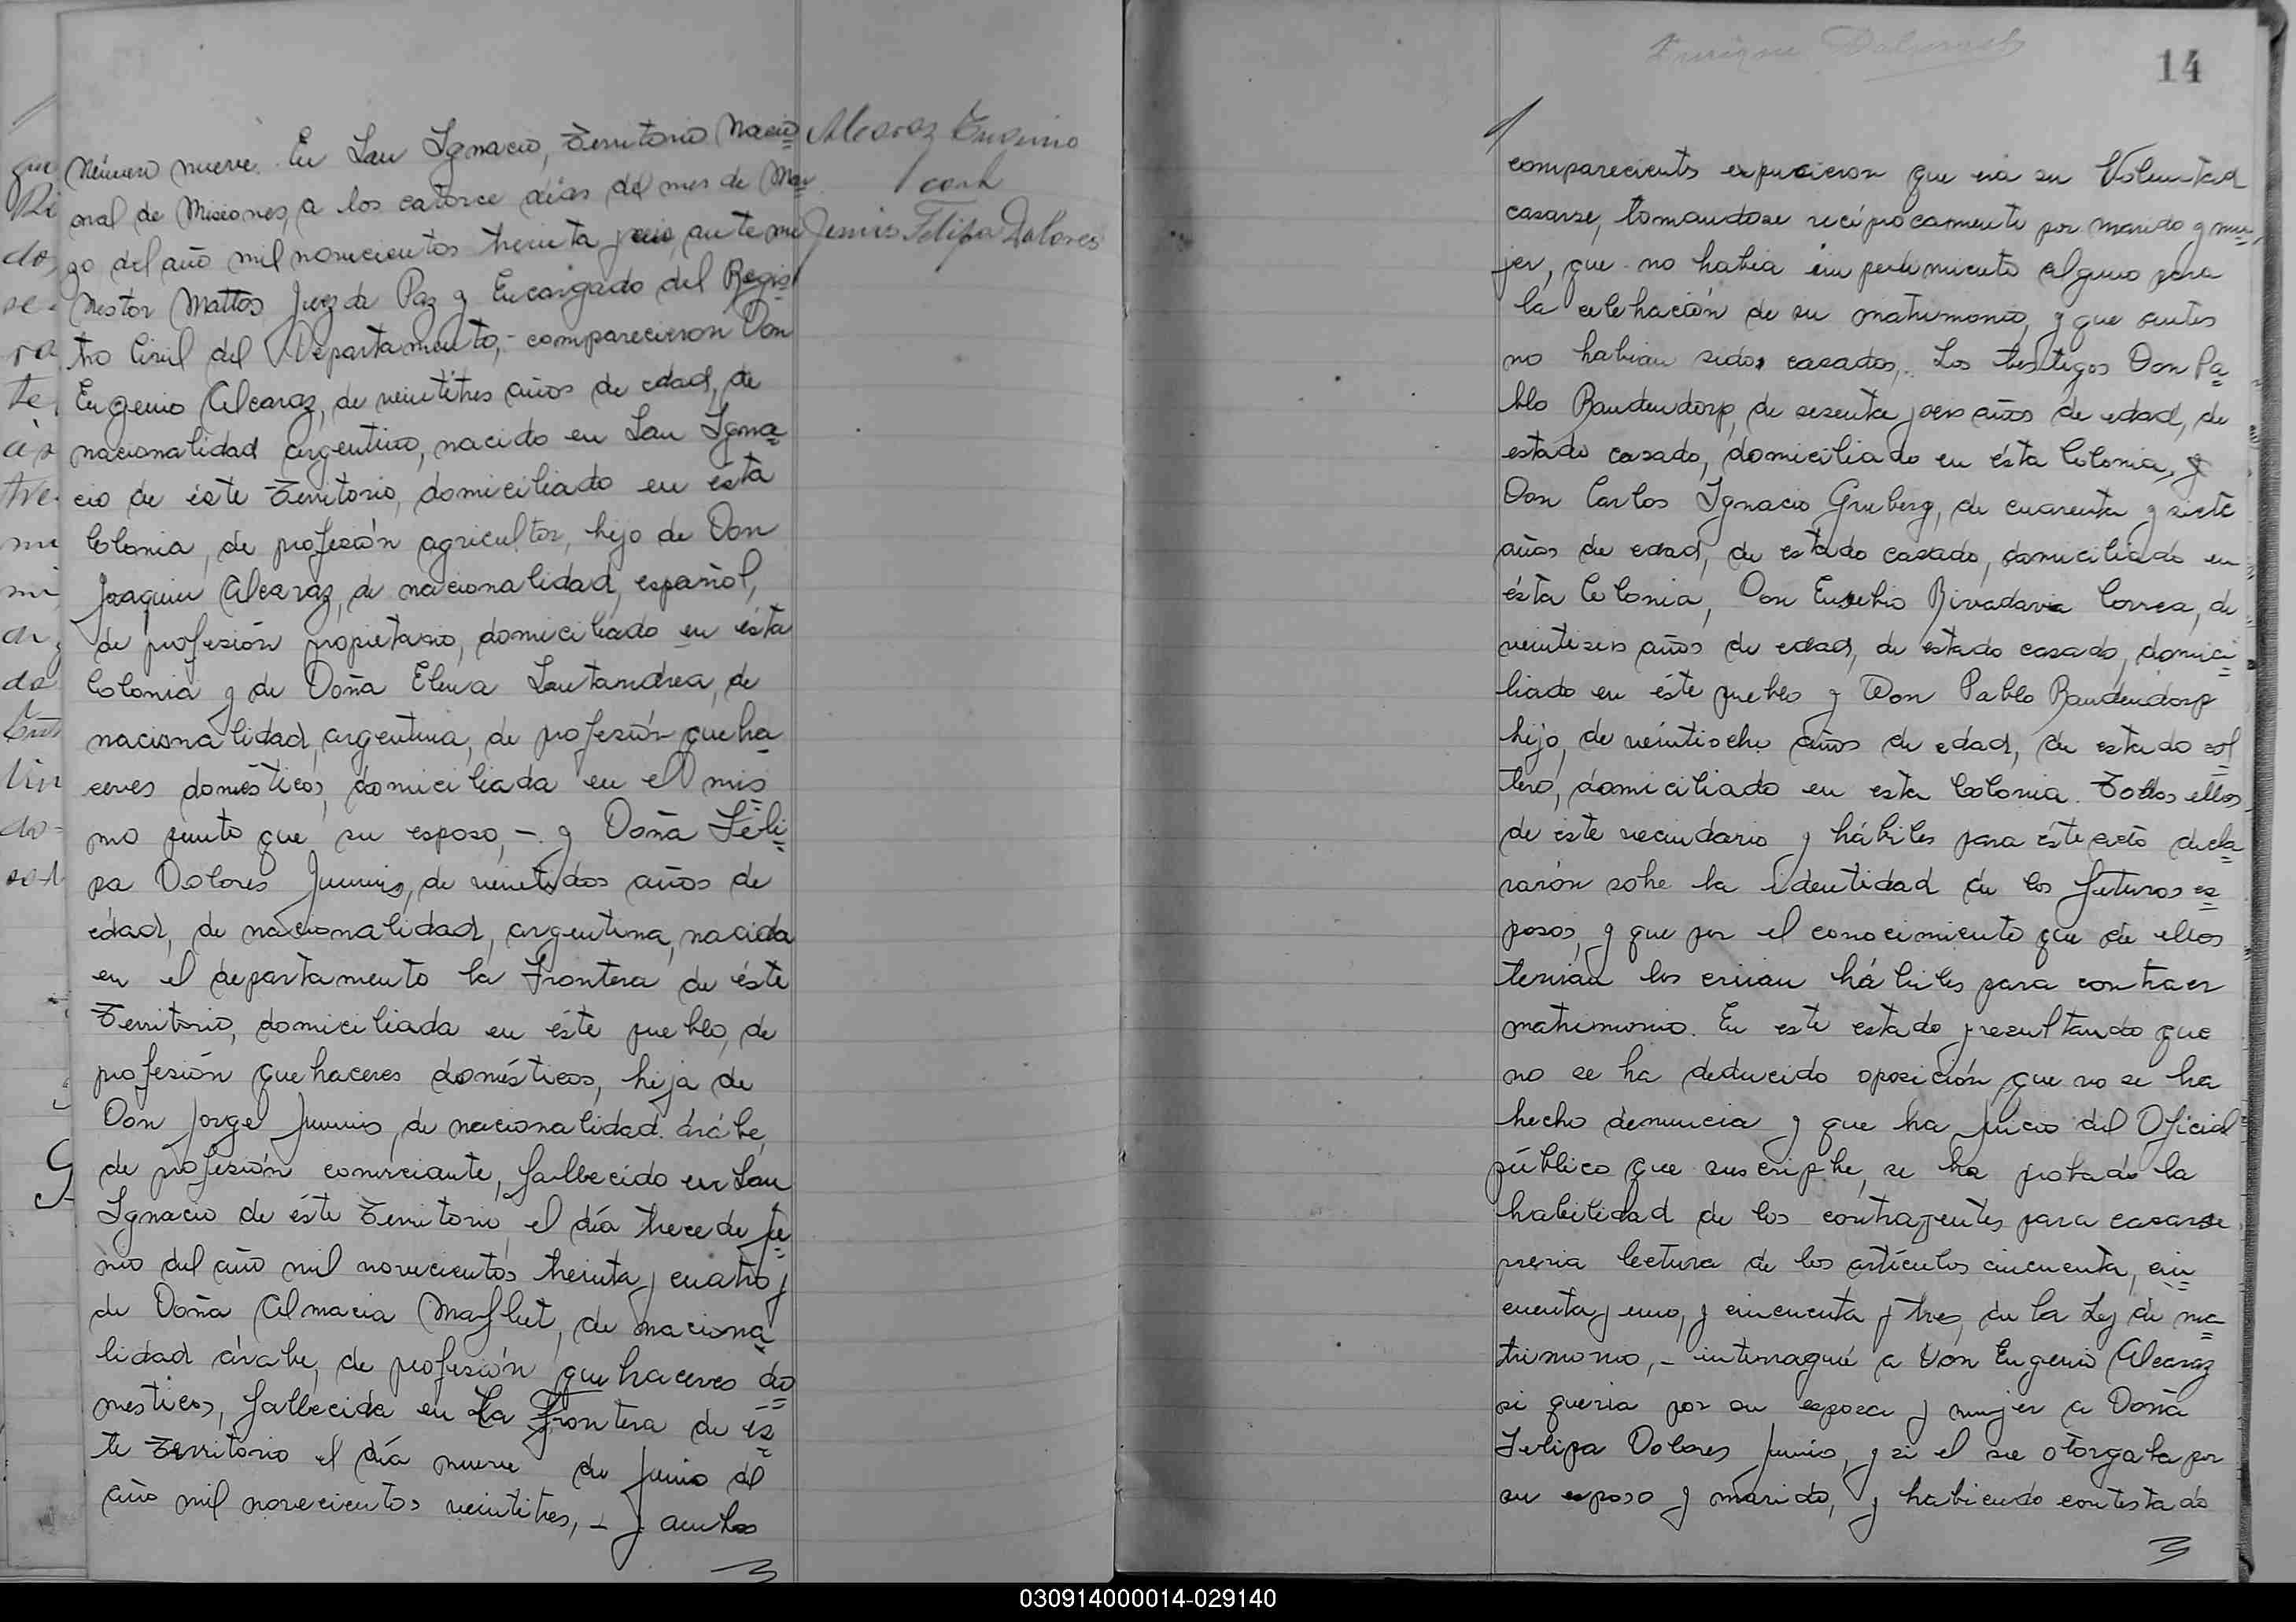 Número nueve. En San Ignacio, Territorio Nacio=
onal de Misiones, a los catorce días del mes de Ma=
yo del año mil novecientos treinta y seis, ante mi
Nestor Mattos Juez de Paz y Encargado del Regis=
tro Civil del Departamento,- comparecieron Don
Eugenio Alcaraz, de veintitres años de edad, de
nacionalidad argentino, nacido en San Igna=
cio de éste Territorio, domiciliado en ésta
Colonia, de profesión agricultor, hijo de Don
Joaquin Alcaraz, de nacionalidad, español,
de profesión propietario, domiciliado en ésta
Colonia y de Doña Elena Santandrea, de
nacionalidad, argentina, de profesión queha=
ceres domésticos, domiciliada en el mis=
mo punto que su esposo, - y Doña Feli=
pa Dolores Junnis, de veintidos años de
edad, de nacionalidad, argentina, nacida
en el departamento la Frontera de éste
Territorio, domiciliada en éste pueblo, de
profesión quehaceres domésticos, hija de
Don Jorge Junnis, de nacionalidad árabe,
de profesión comerciante, fallecido en San
Ignacio de éste Territorio, el día trece de Ju=
nio del año mil novecientos treinta y cuatro y
de Doña Almacia, de naciona=
lidad árabe, de profesión quehaceres do=
mesticos, fallecida en La Frontera de és=
te Territorio el día nueve de Junio del
año mil novecientos veintitres, - y ambos
Alcaraz Eugenio
con
Junnis Felipa Dolores
14
comparecients expucieron que era su Voluntad
casarse, tomandose recíprocamente por marido y mu=
jer, que no habia impedimiento alguno para
la celebración de su matrimonio, y que antes
no habian sidos casados,. Los testigos Don Pa=
blo Baudendorp, de sesenta y seis años de edad, de
estado casado, domiciliado en ésta Colonia, y
Don Carlos Ignacio Gruberg, de cuarenta y siete
años de edad, de estado casado, domiciliado en
ésta Colonia, Don Eusebio Rivadavia Correa, de
veintiseis años de edad, de estado casado, domici=
liado en éste pueblo y Don Pablo Baudendorp
hijo, de veintiocho años de edad, de estado sol=
tero, domiciliado en esta Colonia. Todos ellos
de éste vecindario y hábiles para éste acto decla=
rarón sobre la identidad de los futuros es=
posos, y que por el conocimiento que de ellos
tenian los creian hábiles para contraer
matrimonio. En este estado y resultando que
no se ha deducido oposición, que no se ha
hecho denuncia y que ha juicio del Oficial
público que suscriphe, se ha probado la
habilidad de los contrayentes para casarse
previa lectura de los artículos cincuenta, cin=
cuenta y uno, y cincuenta y tres, de la Ley de ma=
trimonio, - interragué a Don Eugenio Alcaraz
si queria por su esposa y mujer a Doña
Felipa Dolores Junis, y si el se otorgaba por
su esposo y marido, y habiendo contestado
030914000014-029140